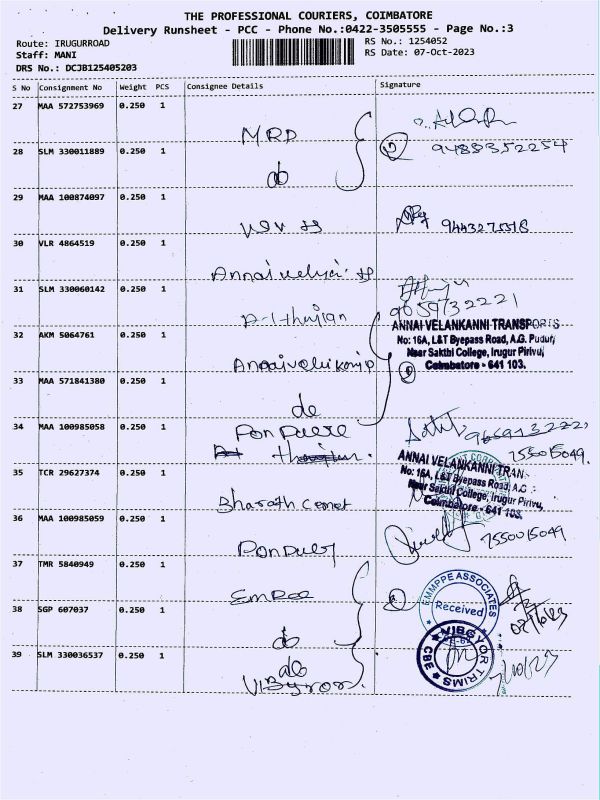 THE PROFESSIONAL COURIERS, COIMBATORE
Delivery Runsheet - PCC - Phone No.:0422-3505555 - Page No.:3
Route: IRUGURROAD
Staff: MANI
DRS No.: DCJB125405203
RS No.: 1254052
RS Date: 07-Oct-2023
S No Consignment No Weight PCS Consignee Details Signature
27 MAA 572753969 0.250 1
MRD
9488352254
28 SLM 330011889 0.250 1
do
29 MAA 100874097 0.250 1
9443275518
30 VLR 4864519 0.250 1
31 SLM 330060142 0.250 1
9659732221
32 AKM 5064761 0.250 1
ANNAI VELANKANNI TRANSPORTS
No: 16A, L&T Byepass Road, A.G. Pudur,
Near Sakthi College, Irugur Pirivu,
Coimbatore - 641 103.
33 MAA 571841380 0.250 1
do
34 MAA 100985058 0.250 1
7550015049
35 TCR 29627374 0.250 1
ANNAI VELANKANNI TRAN
No: 16A, L&T Byepass Road, A.G.
Near Sakthi College, Irugur Pirivu,
Coimbatore - 641 103.
Bharath Cemet
36 MAA 100985059 0.250 1
7550015049
37 TMR 5840949 0.250 1
EMMPPE ASSOCIATES
Received
38 SGP 607037 0.250 1
do
VIBGYOR TRIMS
CBE
39 SLM 330036537 0.250 1
do